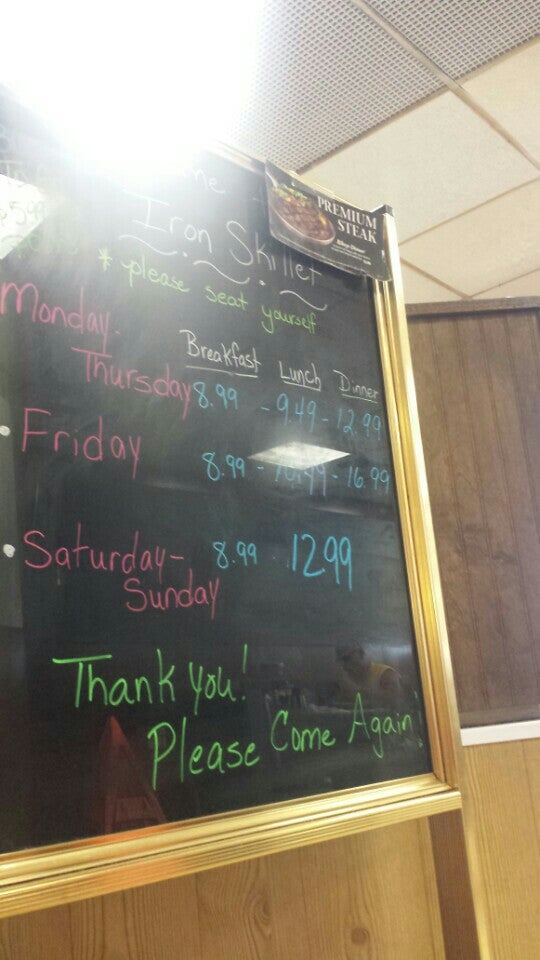 Iron Skillet
* please seat yourself
PREMIUM
STEAK
Monday-
Thursday
Breakfast Lunch Dinner
8.99 - 9.49 - 12.99
Friday
8.99 - 10.49 - 16.99
Saturday-
Sunday
8.99 - 12.99
Thank you!
Please Come Again!